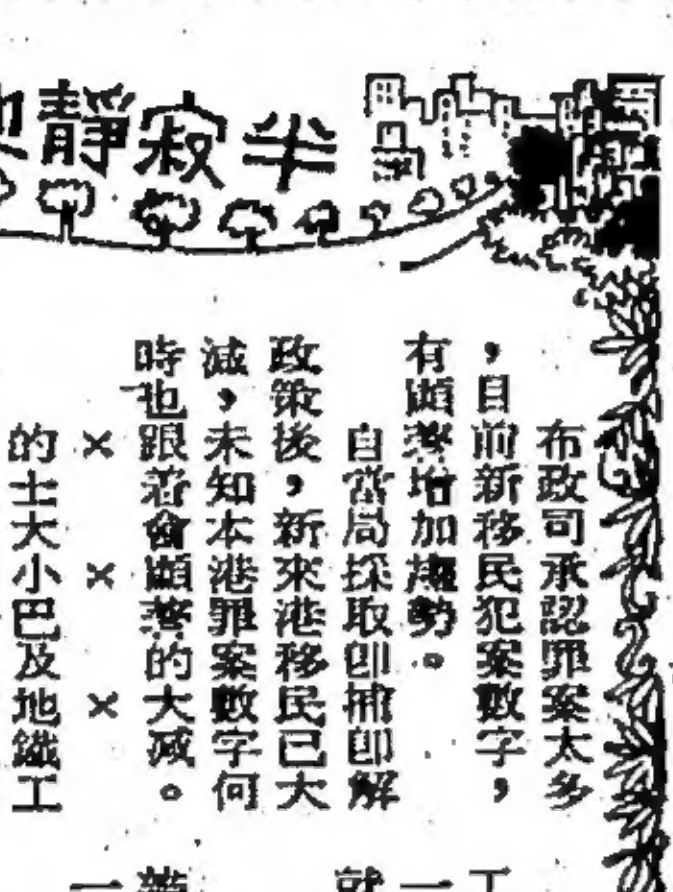 半寂靜
布政司承認罪案太多
，目前新移民犯案數字，
有顯著增加趨勢。
自當局採取即捕即解
政策後，新來港移民已大
減，未知本港罪案數字何
時也跟着會顯著的大減。
× × ×
的士大小巴及地鐵工
工
一
就
一